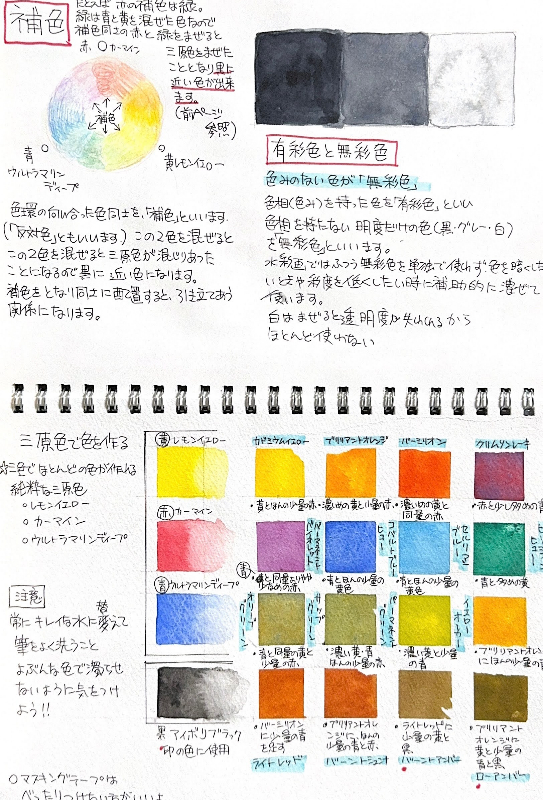 補色
たとえば 赤の補色は緑。
緑は青と黄を混ぜた色なので
補色同士の赤と緑をまぜると
赤 カーマイン
三原色をまぜた
こととなり黒に
近い色が出来
ます。
(前ページ
参照)
補色
青
ウルトラマリン
ディープ
黄レモンイエロー
色環の向い合った色同士を、「補色」といいます。
(「反対色」ともいいます) この2色を混ぜると
この2色を混ぜると三原色が混じりあった
ことになるので黒に近い色になります。
補色をとなり同士に配置すると、引き立てあう
関係になります。
有彩色と無彩色
色みのない色が「無彩色」
色相(色み)を持った色を「有彩色」といい
色相を持たない明度だけの色(黒・グレー・白)
を「無彩色」といいます。
水彩画ではふつう無彩色を単独で使わず色を暗くした
いときや彩度を低くしたい時に補助的に混ぜて
使います。
白はまぜると透明度が失われるから
ほとんど使わない
三原色で色を作る
☆三色でほとんどの色が作れる
純粋な三原色
○レモンイエロー
○カーマイン
○ウルトラマリンディープ
注意
常にキレイな水に替えて
筆をよく洗うこと
よぶんな色で濁らせ
ないように気をつけ
よう!!
○マスキングテープは
レモンイエロー
赤 カーマイン
青 ウルトラマリンディープ
黒 アイボリブラック
印の色に使用
カドミウムイエロー
・黄とほんの少量の赤
ブリリアントオレンジ
・濃いめの黄と少量の赤
バーミリオン
・濃いめの黄と
同量の赤
クリムソンレーキ
・赤と少し多めの青
コバルトブルー
ヒュー
・青とほんの少量の
黄色
セルリアン
ブルー
・青とほんの少量の
・青と多めの黄
オリーブ
グリーン
・青と同量の黄と
少量の赤
・濃い黄と少量
の青
イエロー
オーカー
・ブリリアントオレン
・バーミリオン
に少量の青
を足す
ライトレッド
・ブリリアントオレ
ンジに、ほんの
少量の青と赤、
バーントシェンナ
・ライトレッドに
少量の黄と
黒
バーントアンバー
・ブリリアント
オレンジに
黄と少量
の青と黒
ローアンバー